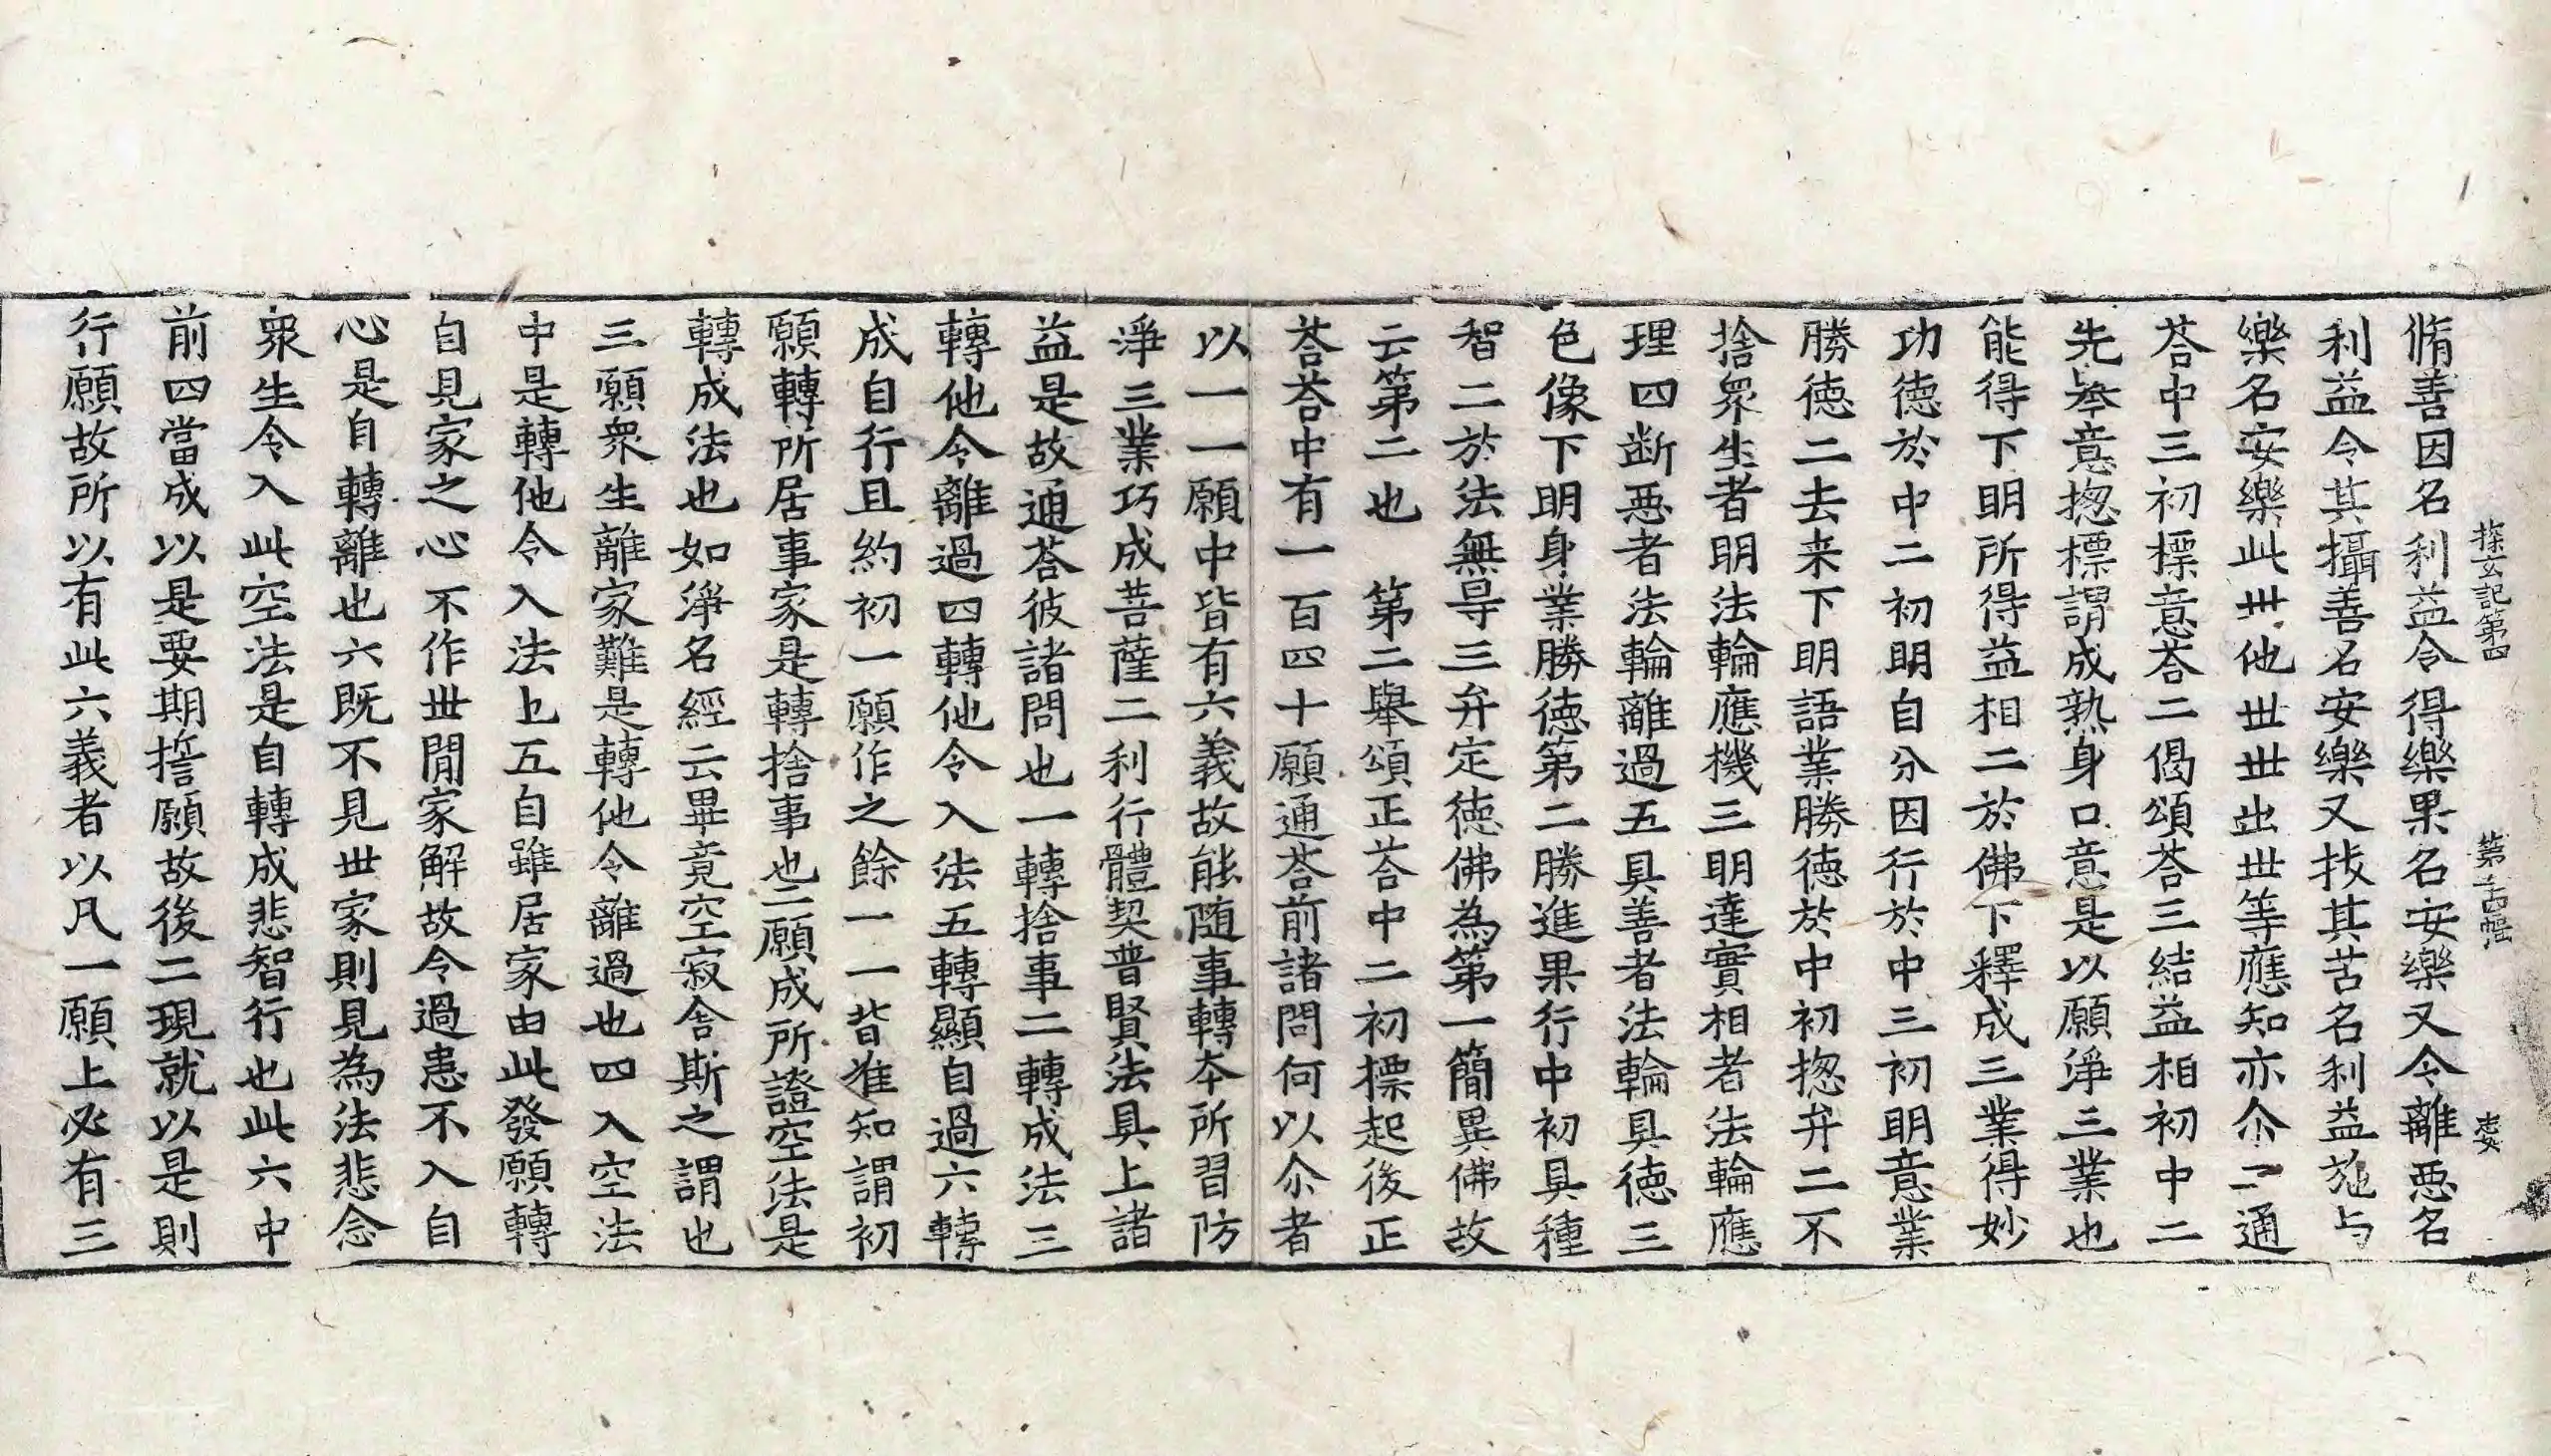 探玄記第四 第二十五幅 忠安
脩善因名利益令得樂果名安樂又令離恶名
利益令其攝善名安樂又拔其苦名利益施与
樂名安樂此世他世世出世等應知亦尒二通
荅中三初標意荅二偈頌荅三結益相初中二
先牽意揔標謂成熟身口意是以願淨三業也
能得下明所得益相二於佛下釋成三業得妙
功徳於中二初明自分因行於中三初明意業
勝徳二去来下明語業勝徳於中初揔弁二不
捨衆生者明法輪應機三明達實相者法輪應
理四断恶者法輪離過五具善者法輪具徳三
色像下明身業勝徳第二勝進果行中初具種
智二於法無㝵三弁定徳佛為第一簡異佛故
云第二也 第二舉頌正荅中二初標起後正
荅荅中有一百四十願通荅前諸問何以尒者
以一一願中皆有六義故能随事轉本所習防
淨三業巧成菩薩二利行體契普賢法具上諸
益是故通荅彼諸問也一轉捨事二轉成法三
轉他令離過四轉他令入法五轉顯自過六轉
成自行且約初一願作之餘一一皆准知謂初
願轉所居事家是轉捨事也二願成所證空法是
轉成法也如淨名經云畢竟空寂舍斯之謂也
三願衆生離家難是轉他令離過也四入空法
中是轉他令入法上五自雖居家由此發願轉
自見家之心不作世閒家解故令過患不入自
心是自轉離也六既不見世家則見為法悲念
衆生令入此空法是自轉成悲智行也此六中
前四當成以是要期誓願故後二現就以是則
行願故所以有此六義者以凡一願上必有三